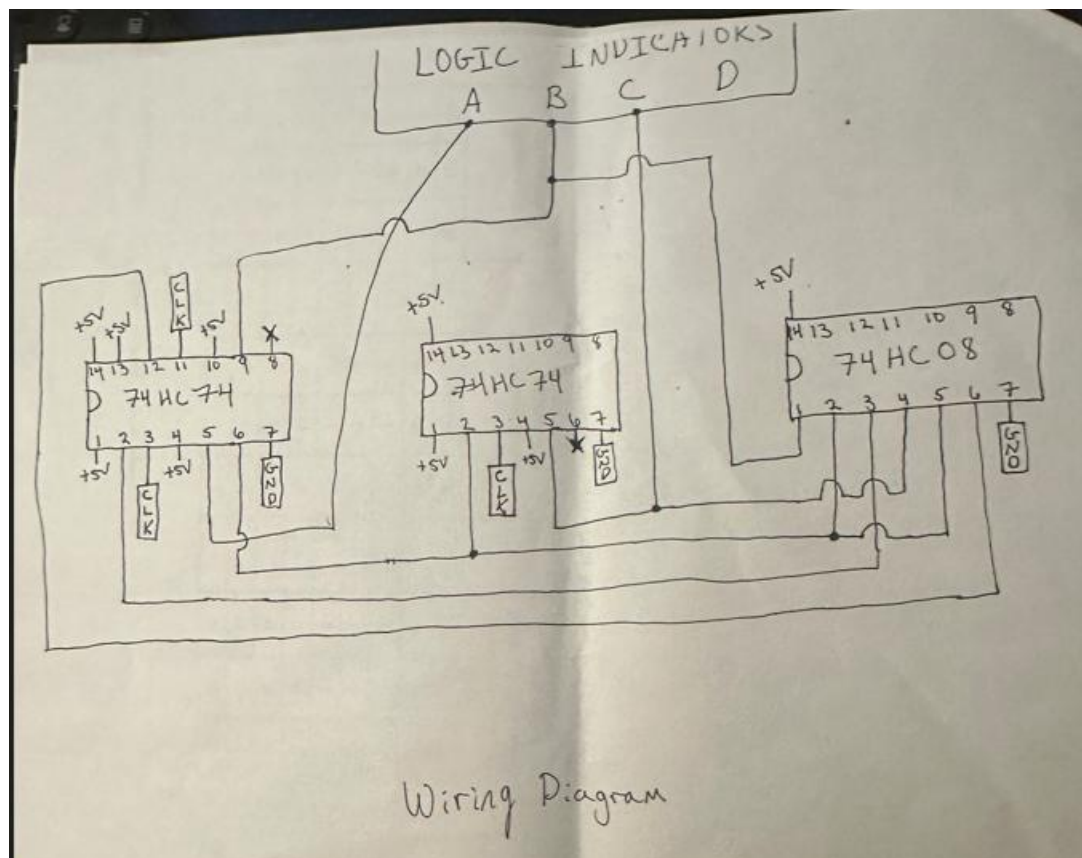 LOGIC INDICATORS
A B C D
+5V +5V CLK +5V X
14 13 12 11 10 9 8
74HC74
1 2 3 4 5 6 7
+5V CLK +5V GND
+5V
14 13 12 11 10 9 8
74HC74
1 2 3 4 5 6 7
+5V CLK +5V X GND
+5V
14 13 12 11 10 9 8
74HC08
1 2 3 4 5 6 7
GND
Wiring Diagram